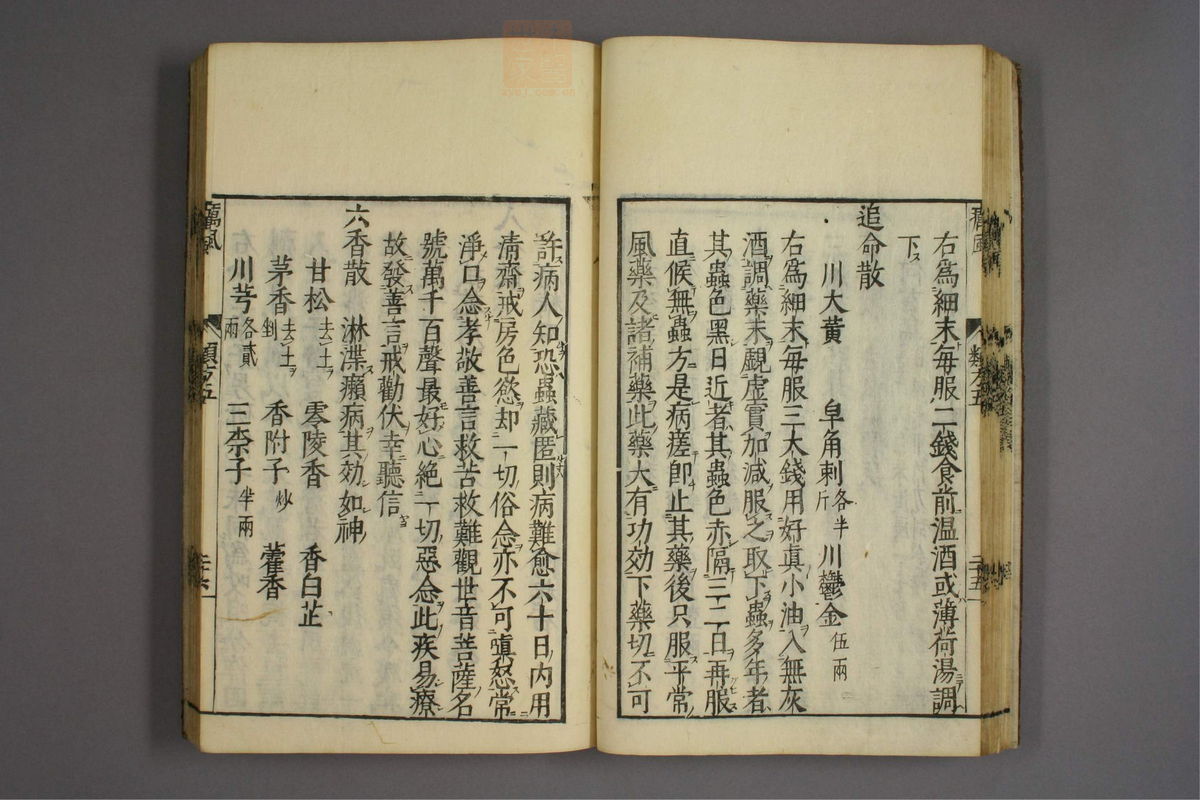 右爲細末每服二錢食前温酒或薄荷湯調
下
追命散
川大黄　皁角刺各半斤　川鬱金伍兩
右爲細末每服三大錢用好眞小油入無灰
酒調藥末覷虛實加減服之取下蟲多年者
其蟲色黑日近者其蟲色赤隔三二日再服
直候無蟲方是病瘥卽止其藥後只服平常
風藥及諸補藥此藥大有功効下藥切不可
許病人知恐蟲藏匿則病難愈六十日内用
清齋戒房色慾却一切俗念亦不可嗔怒常
淨口念孝敬善言救苦救難觀世音菩薩名
號萬千百聲最好心絶一切惡念此疾易療
故發善言戒勸伏幸聽信
六香散　淋渫癩病其効如神
甘松去土　零陵香　香白芷
茅香去土剉　香附子炒　藿香
川芎各貳兩　三柰子半兩
癘風　類方五